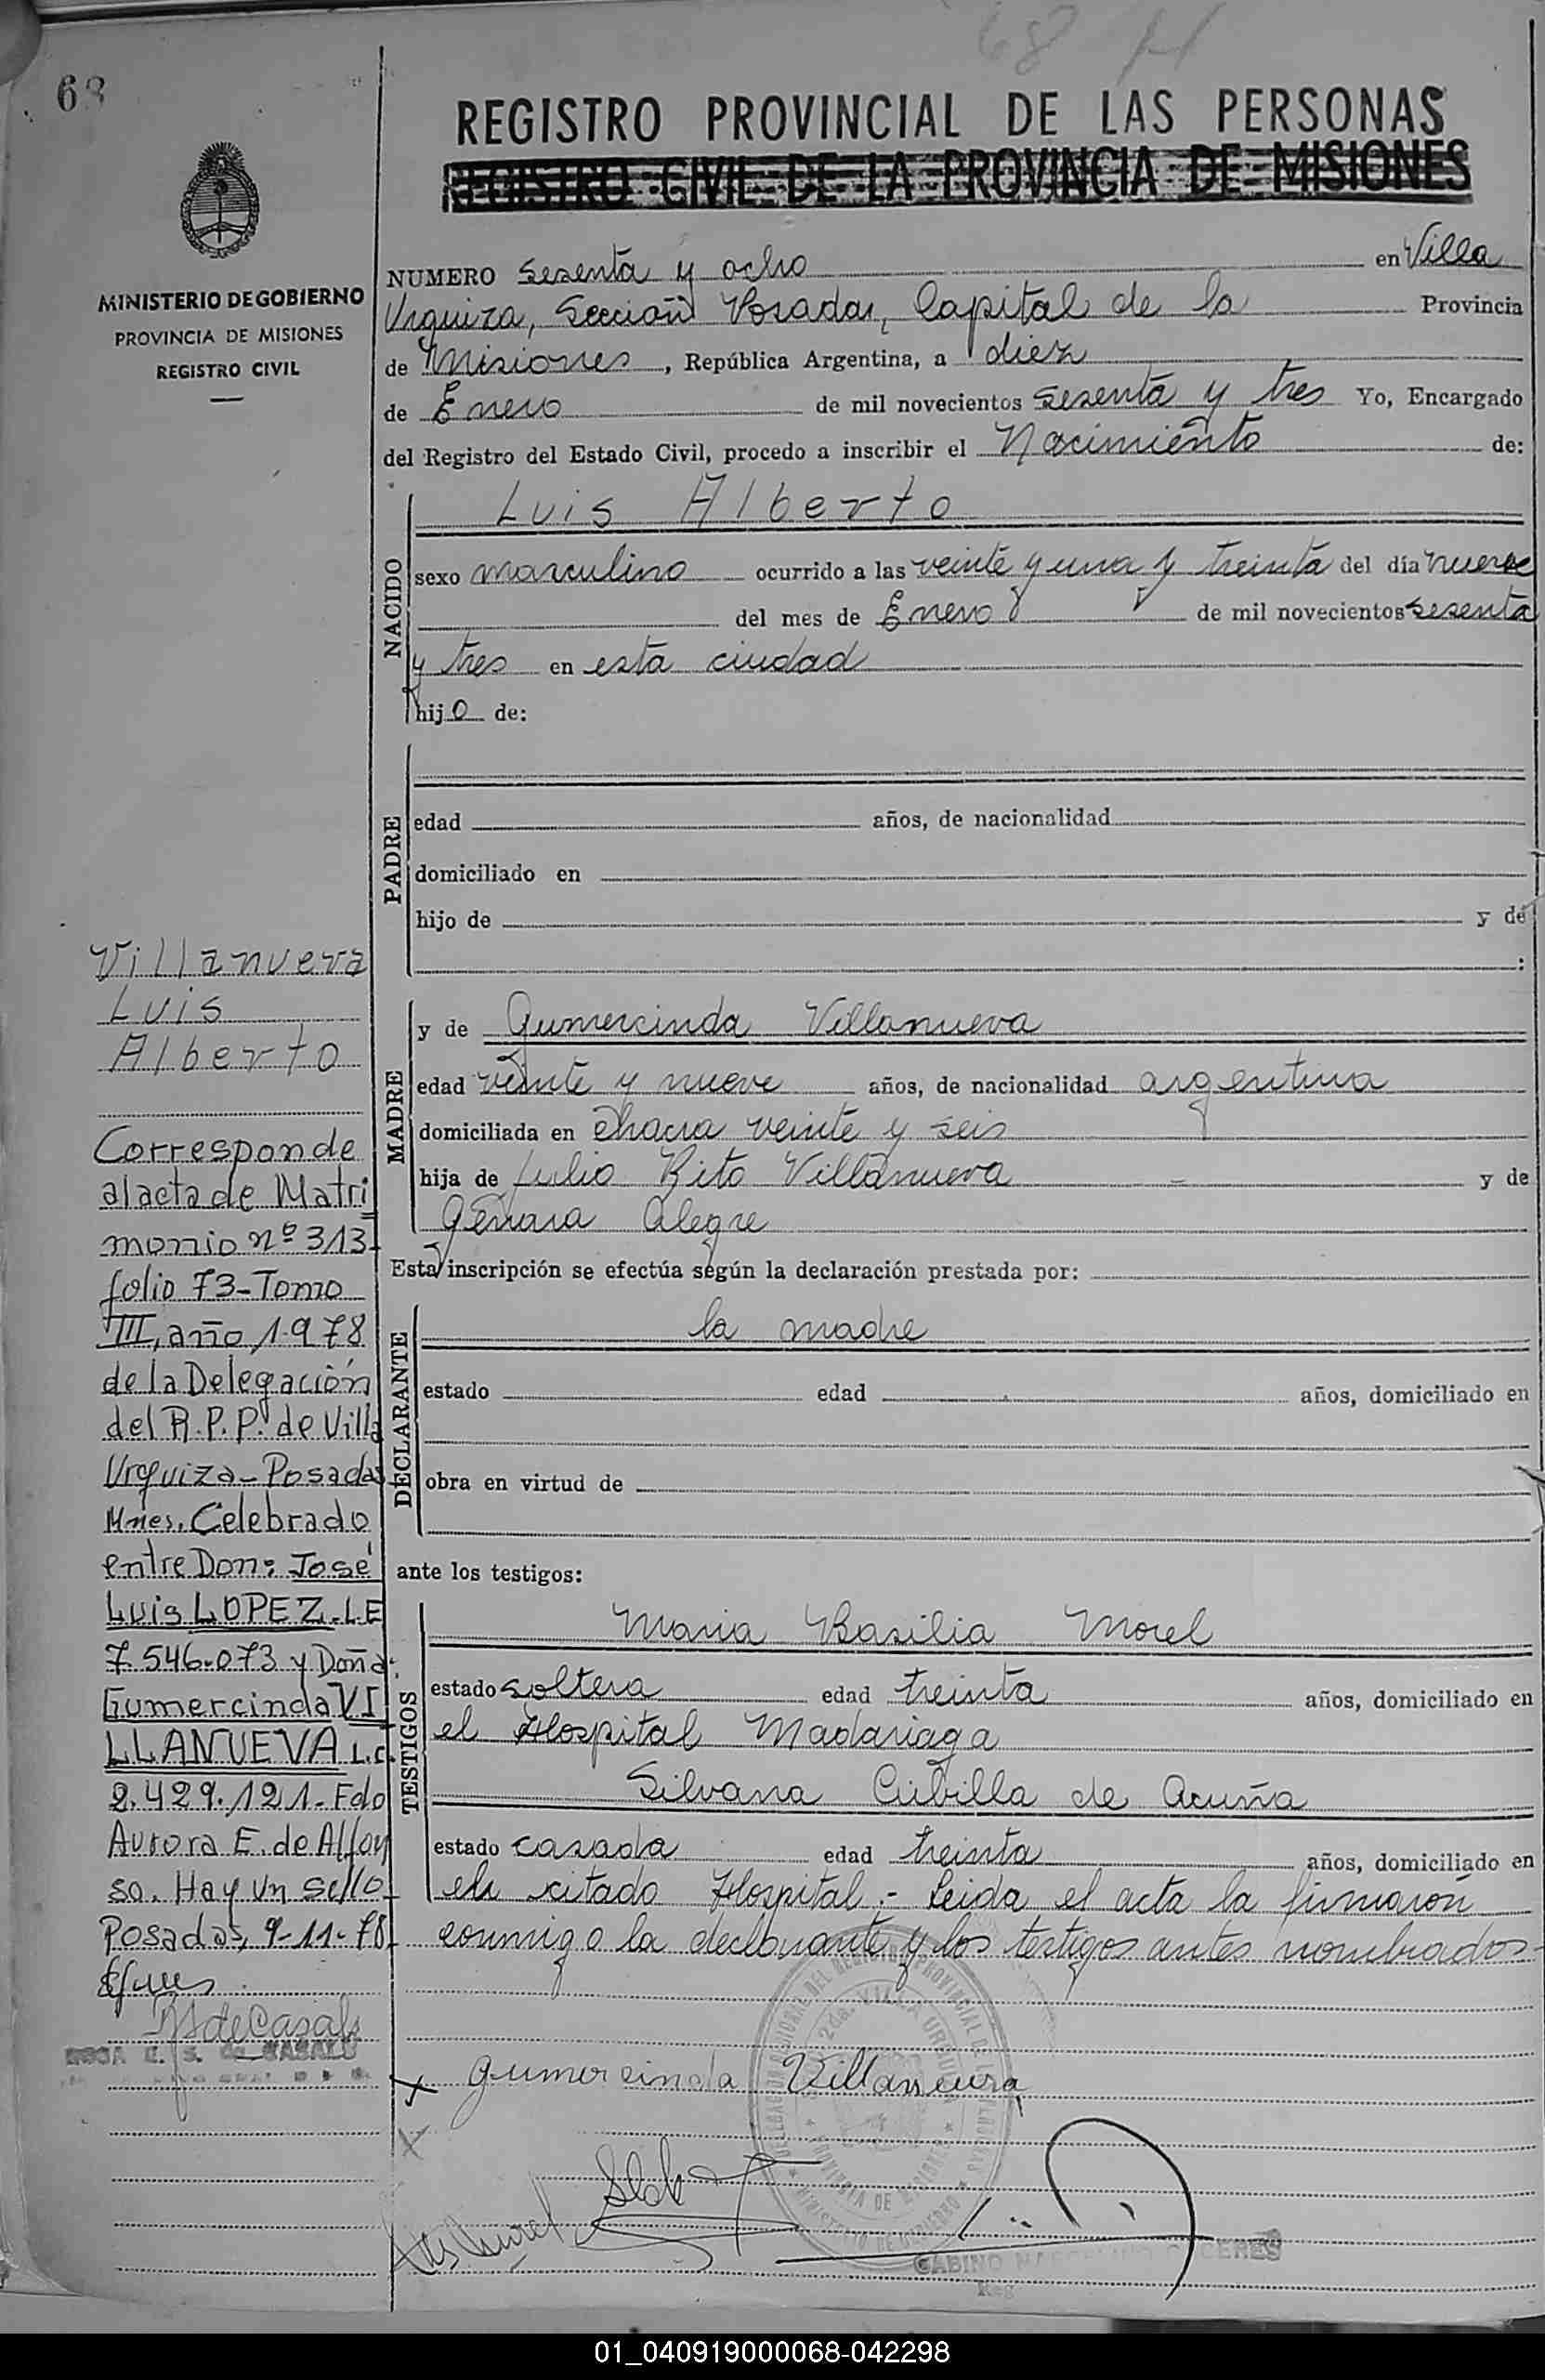 68
68
REGISTRO PROVINCIAL DE LAS PERSONAS
REGISTRO CIVIL DE LA PROVINCIA DE MISIONES
MINISTERIO DE GOBIERNO
PROVINCIA DE MISIONES
REGISTRO CIVIL
NUMERO sesenta y ocho en Villa
Urquiza, Sección Posadas, Capital de la Provincia
de Misiones, República Argentina, a diez
de Enero de mil novecientos sesenta y tres Yo, Encargado
del Registro del Estado Civil, procedo a inscribir el Nacimiento de:
NACIDO
Luis Alberto
sexo masculino ocurrido a las veinte y una y treinta del día nueve
del mes de Enero de mil novecientos sesenta
y tres en esta ciudad
hijo de:
PADRE
edad años, de nacionalidad
domiciliado en
hijo de y de
:
MADRE
y de Gumercinda Villanueva
edad veinte y nueve años, de nacionalidad argentina
domiciliada en chacra veinte y seis
hija de Julio Rito Villanueva y de
Genara Alegre
Esta inscripción se efectúa según la declaración prestada por:
DECLARANTE
la madre
estado edad años, domiciliado en
obra en virtud de
ante los testigos:
TESTIGOS
Maria Basilia Morel
estado soltera edad treinta años, domiciliado en
el Hospital Madariaga
Silvana Cubilla de Acuña
estado casada edad treinta años, domiciliado en
el citado Hospital.- Leida el acta la firmaron
conmigo la declarante y los testigos antes nombrados-
Gumercinda Villanueva
GABINO
Villanueva
Luis
Alberto
Corresponde
al acta de Matri
monio nº 313
folio 73-Tomo
III, año 1.978
de la Delegación
del R.P.P. de Villa
Urquiza-Posadas
Mnes. Celebrado
entre Don: José
Luis LOPEZ-L.E
7.546.073 y Doña:
Gumercinda VI
LLANUEVA L.C.
2.429.121-Fdo
Aurora E. de Alfon
so. Hay un sello
Posadas, 9-11-78
de Casals
01_040919000068-042298